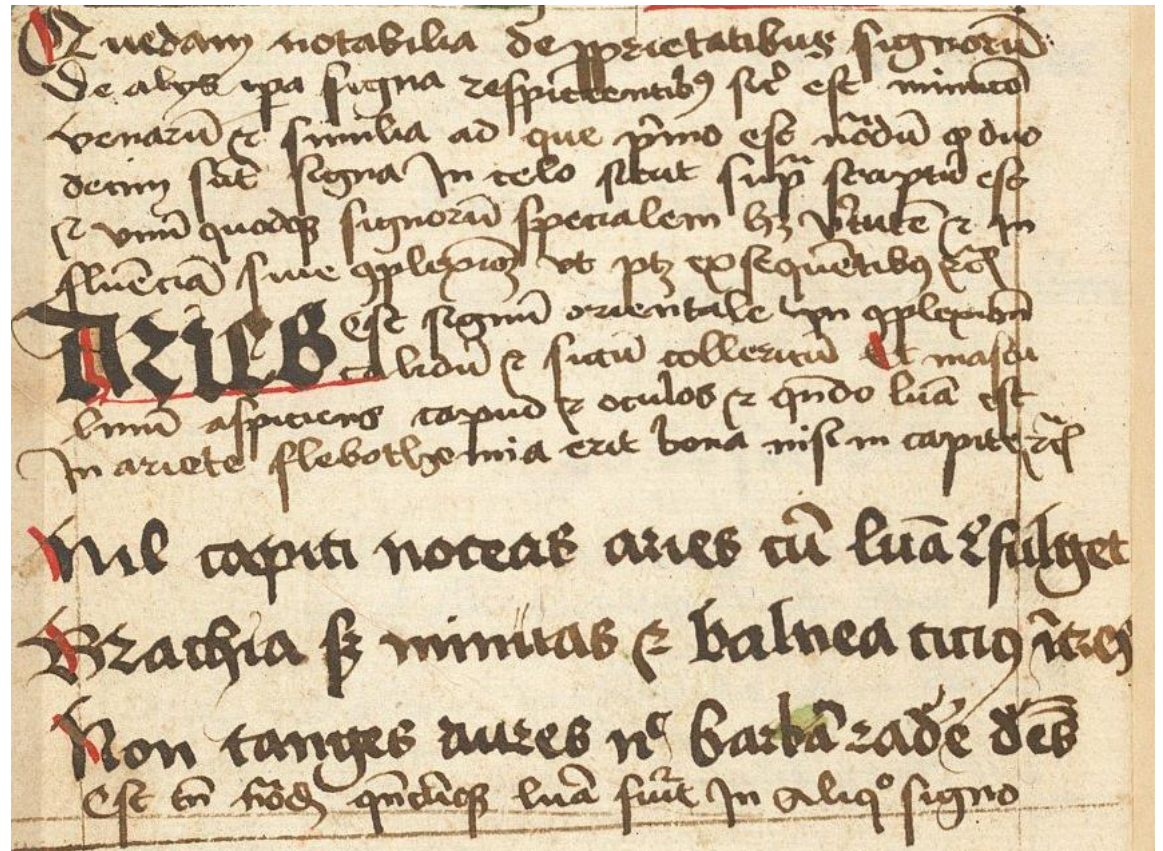 Quedam notabilia de ꝓprietatibus signorū
de alijs ipa signa respicientibꝯ sic̄ est minucō
venarū ⁊ similia ad que pͥmo est nōdū ꝙ duo
decim sūt signa In celo sicut supͣ scriptū est
⁊ vnū quodqꝫ signorū specialem hꝫ vͥtutē ⁊ in
fluēciā siue ꝯplexionē vt ptꝫ ex sequētibꝯ ⁊c̄
Aries Est signū orientale ꝯplexionē
calidū ⁊ siccū collericū Et mascu
linū aspiciens capud ⁊ oculos ⁊ qn̄do luā est
In ariete flebothomia erit bona nisi in capite ⁊c̄
Nil capiti noceas aries cū luā refulget
Brachia sꝫ minuas ⁊ balnea iicius ītres
Non tanges aures nͨ barbā radē dēs
Est tn̄ nōdꝫ qn̄cūqꝫ luā fuͥt In aliqͦ signo